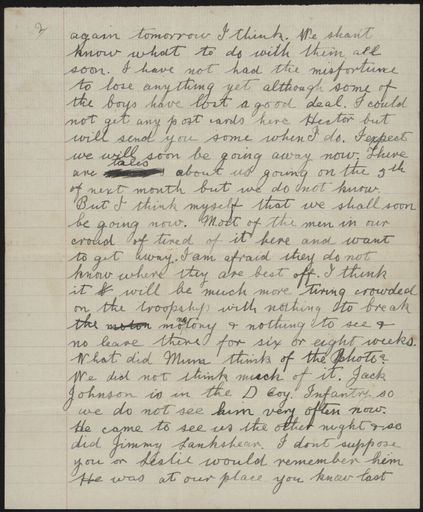 2
again tomorrow I think. We shant
know what to do with them all
soon. I have not had the misfortune
to lose anything yet although some of
the boys have lost a good deal. I could
not get any post cards here Hector but
will send you some when I do. I expect
we will soon be going away now. There
are tales about us going on the 5th
of next month but we do not know.
But I think myself that we shall soon
be going now. Most of the men in our
croud of tired of it here and want
to get away. I am afraid they do not
know where they are best off. I think
it will be much more tiring crowded
on the troopship with nothing to break
the monotony & nothing to see &
no leave there for six or eight weeks.
What did Mum think of the Photo?
We did not think much of it. Jack
Johnson is in the D Coy. Infantry so
we do not see him very often now.
He came to see us the other night & so
did Jimmy Lankshear. I dont suppose
you or Leslie would remember him
He was at our place you know last